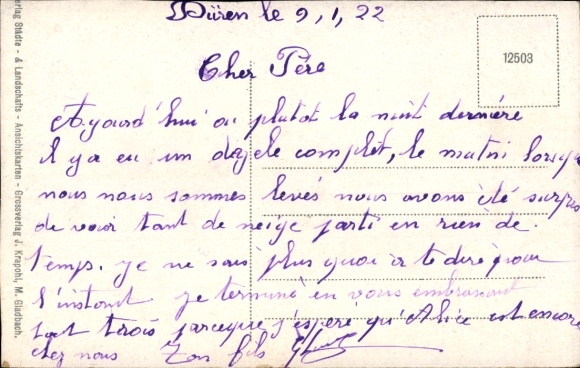 Düren le 9,1,22
12503
Cher Père
Aujourd'hui ou plutot la nuit dernière
il y a eu un dégele complet, le matin lorsque
nous nous sommes levés nous avons été surpris
de voir tant de neige parti en rien de
temps. je ne sais plus quoi à te dire pour
l'instant je terminé en vous embrassant
tout trois parceque j'espère qu'Alice est encore
chez nous Ton fils
erlag Städte - & Landschafts - Ansichtskarten - Grossverlag J. Krapohl, M. Gladbach.